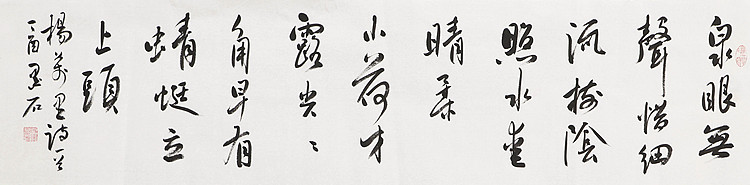 泉眼無
聲惜細
流樹陰
照水愛
晴柔
小荷才
露尖〻
角早有
蜻蜓立
上頭
楊萬里詩一首
丁酉